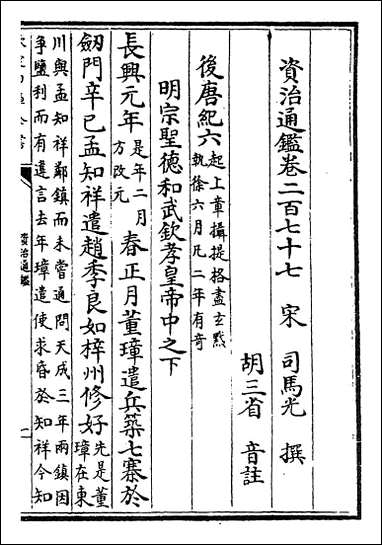 資治通鑑卷二百七十七　宋　司馬光　撰
胡三省　音註
後唐紀六起上章攝提格盡玄黓
執徐六月凡二年有奇
明宗聖德和武欽孝皇帝中之下
長興元年是年二月
方改元春正月董璋遣兵築七寨於
劒門辛巳孟知祥遣趙季良如梓州修好先是董
璋在東
川與孟知祥鄰鎮而未嘗通問天成三年兩鎮因
爭鹽利而有違言去年璋遣使求昏於知祥今知
資治通鑑